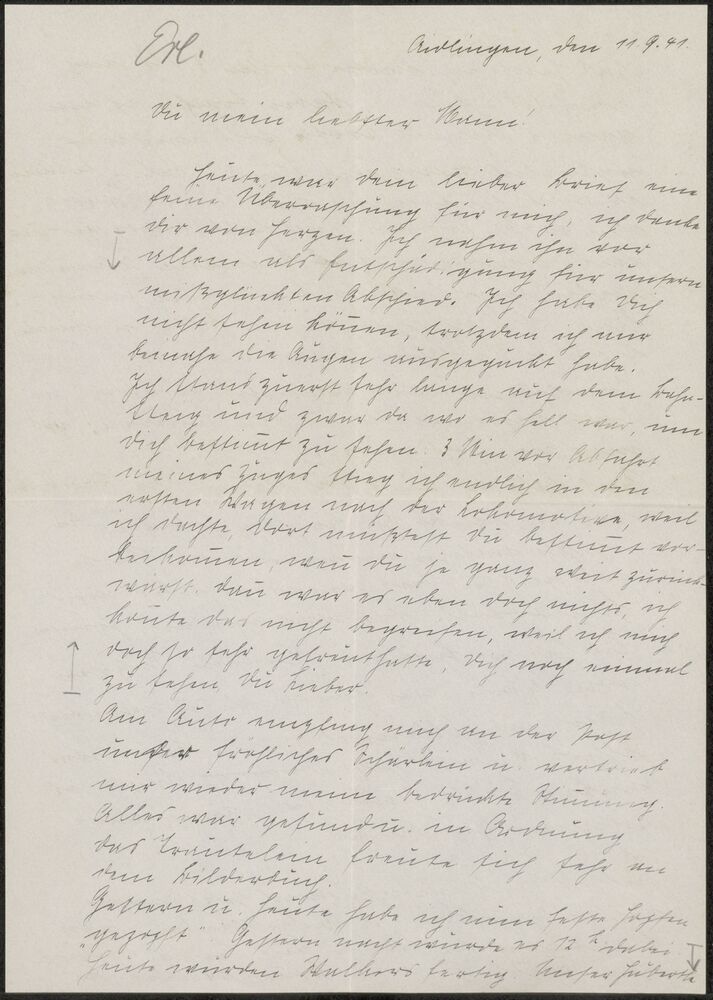 Erl.
Aidlingen, den 11.9.41.
Du mein liebster Mann!
Heute war dein lieber Brief eine
feine Überraschung für mich, ich danke
dir von Herzen. Ich nehm ihn vor
allem als Entschädigung für unsern
mißglückten Abschied. Ich habe Dich
nicht sehen können, trotzdem ich mir
beinahe die Augen ausgeguckt habe.
Ich stand zuerst sehr lange auf dem Bahn-
steig und zwar da wo es hell war, um
Dich bestimmt zu sehen. 3 Min vor Abfahrt
meines Zuges stieg ich endlich in den
ersten Wagen nach der Lokomotive, weil
ich dachte, dort müßtest Du bestimmt vor-
beikommen, wenn du je ganz weit zurück
warst. Dann war es eben doch nichts, ich
konnte das nicht begreifen, weil ich mich
doch so sehr gefreut hatte, Dich noch einmal
zu sehen, Du Lieber.
Am Auto empfing mich an der Post
unser fröhliches Schärlein u. vertrieb
mir wieder meine bedrückte Stimmung.
Alles war gesund u. in Ordnung
das Trautelein freute sich sehr an
dem Bilderbuch.
Gestern u. heute habe ich nun feste Hopfen
"gezopft" Gestern nacht wurde es 12 h dabei.
Heute wurden Walkers fertig. Unser